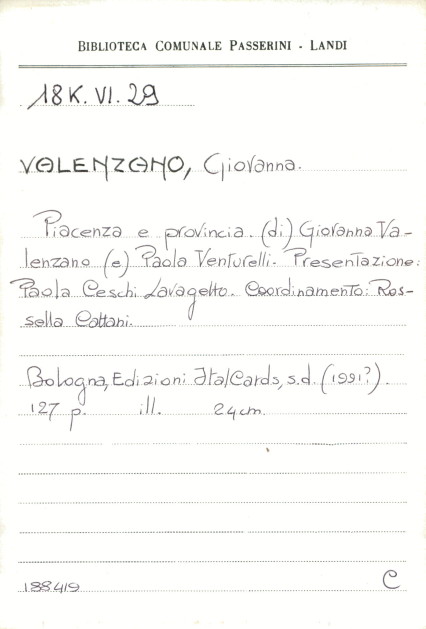 BIBLIOTECA COMUNALE PASSERINI - LANDI
18 K. VI. 29
VALENZANO, Giovanna.
Piacenza e provincia. (di) Giovanna Va-
lenzano (e) Paola Venturelli. Presentazione:
Paola Ceschi Lavagetto. Coordinamento: Ros-
sella Cattani.
Bologna, Edizioni ItalCards, s.d. (1991?).
127 p. ill. 24 cm.
188419 C